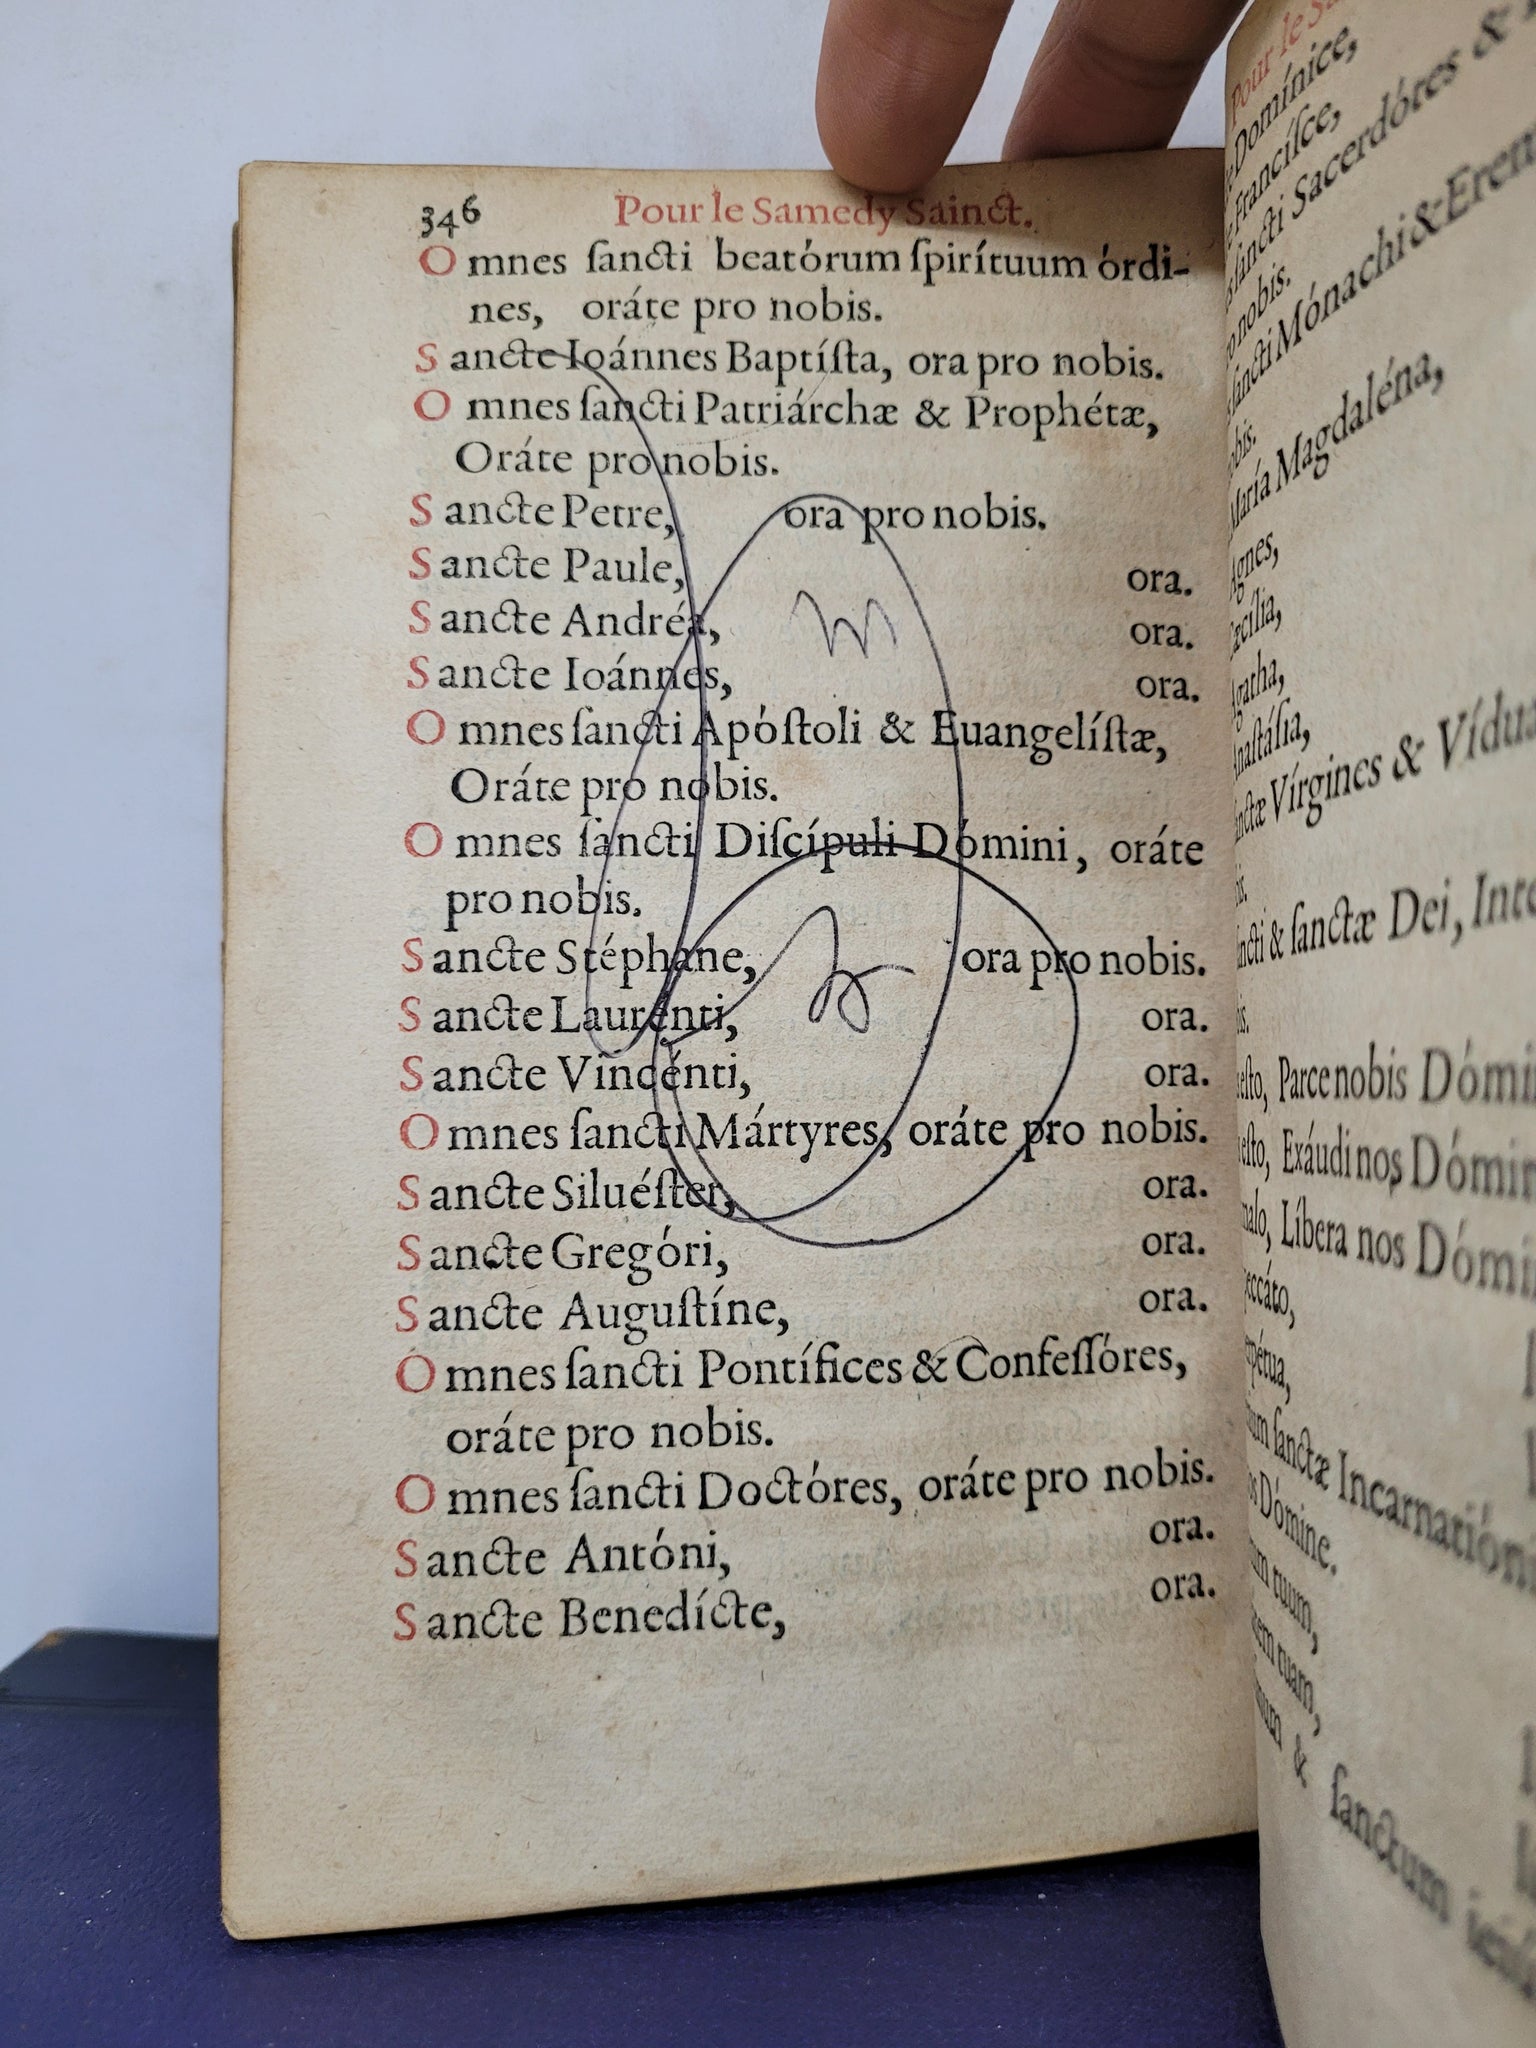 346 Pour le Samedy Sainct.
Omnes ſancti beatórum ſpirítuum órdi-
nes, oráte pro nobis.
Sancte Ioánnes Baptíſta, ora pro nobis.
Omnes ſancti Patriárchæ & Prophétæ,
Oráte pro nobis.
Sancte Petre, ora pro nobis.
Sancte Paule, ora.
Sancte Andréa, ora.
Sancte Ioánnes, ora.
Omnes ſancti Apóſtoli & Euangelíſtæ,
Oráte pro nobis.
Omnes ſancti Diſcípuli Dómini, oráte
pro nobis.
Sancte Stéphane, ora pro nobis.
Sancte Laurénti, ora.
Sancte Vincénti, ora.
Omnes ſancti Mártyres, oráte pro nobis.
Sancte Siluéſter, ora.
Sancte Gregóri, ora.
Sancte Auguſtíne, ora.
Omnes ſancti Pontífices & Confeſſóres,
oráte pro nobis.
Omnes ſancti Doctóres, oráte pro nobis.
Sancte Antóni, ora.
Sancte Benedícte, ora.
Pour le
Domínice,
Franciſce,
ſancti Sacerdótes &
nobis.
ſancti Mónachi &
María Magdaléna,
Agnes,
Cæcília,
Agatha,
Anaſtáſia,
Vírgines & Vídua
& ſanctæ Dei,
Parce nobis
Exáudi nos
Líbera nos
ſanctæ
Dómine.
tuum,
tuam,
&
ſanctum